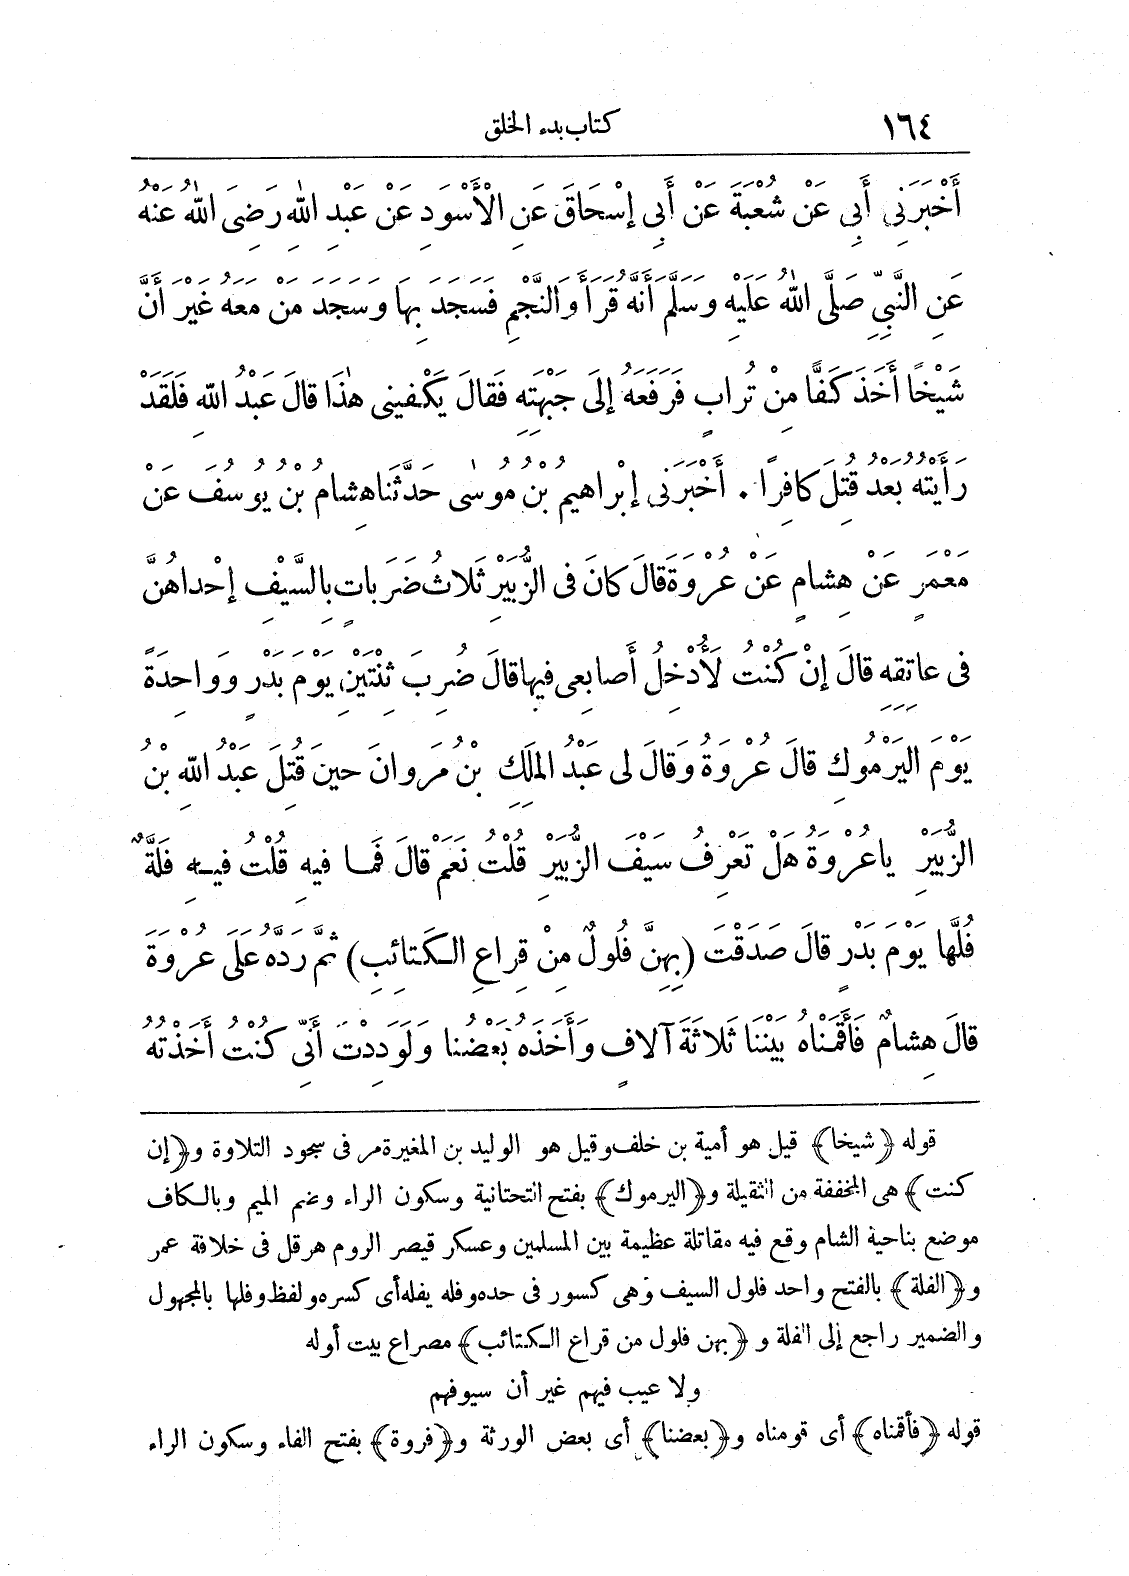 ١٦٤ كتاب بدء الخلق
أَخْبَرَنِى أَبِى عَنْ شُعْبَةَ عَنْ أَبِى إِسْحَاقَ عَنِ الْأَسْوَدِ عَنْ عَبْدِ اللهِ رَضِىَ اللهُ عَنْهُ
عَنِ النَّبِىِّ صَلَّى اللهُ عَلَيْهِ وَسَلَّمَ أَنَّهُ قَرَأَ وَالنَّجْمِ فَسَجَدَ بِهَا وَسَجَدَ مَنْ مَعَهُ غَيْرَ أَنَّ
شَيْخًا أَخَذَ كَفًّا مِنْ تُرَابٍ فَرَفَعَهُ إِلَى جَبْهَتِهِ فَقَالَ يَكْفِينِى هٰذَا قَالَ عَبْدُ اللهِ فَلَقَدْ
رَأَيْتُهُ بَعْدُ قُتِلَ كَافِرًا . أَخْبَرَنِى إِبْرَاهِيمُ بْنُ مُوسٰى حَدَّثَنَا هِشَامُ بْنُ يُوسُفَ عَنْ
مَعْمَرٍ عَنْ هِشَامٍ عَنْ عُرْوَةَ قَالَ كَانَ فِى الزُّبَيْرِ ثَلَاثُ ضَرَبَاتٍ بِالسَّيْفِ إِحْدَاهُنَّ
فِى عَاتِقِهِ قَالَ إِنْ كُنْتُ لَأُدْخِلُ أَصَابِعِى فِيهَا قَالَ ضُرِبَ ثِنْتَيْنِ يَوْمَ بَدْرٍ وَوَاحِدَةً
يَوْمَ الْيَرْمُوكِ قَالَ عُرْوَةُ وَقَالَ لِى عَبْدُ الْمَلِكِ بْنُ مَرْوَانَ حِينَ قُتِلَ عَبْدُ اللهِ بْنُ
الزُّبَيْرِ يَا عُرْوَةُ هَلْ تَعْرِفُ سَيْفَ الزُّبَيْرِ قُلْتُ نَعَمْ قَالَ فَمَا فِيهِ قُلْتُ فِيهِ فَلَّةٌ
فُلَّهَا يَوْمَ بَدْرٍ قَالَ صَدَقْتَ (بِهِنَّ فُلُولٌ مِنْ قِرَاعِ الْكَتَائِبِ) ثُمَّ رَدَّهُ عَلَى عُرْوَةَ
قَالَ هِشَامٌ فَأَقَمْنَاهُ بَيْنَنَا ثَلَاثَةَ آلَافٍ وَأَخَذَهُ بَعْضُنَا وَلَوَدِدْتُ أَنِّى كُنْتُ أَخَذْتُهُ
قوله ﴿شيخا﴾ قيل هو أمية بن خلف وقيل هو الوليد بن المغيرة مر فى سجود التلاوة و﴿إن
كنت﴾ هى المخففة من الثقيلة و﴿اليرموك﴾ بفتح التحتانية وسكون الراء وضم الميم وبالكاف
موضع بناحية الشام وقع فيه مقاتلة عظيمة بين المسلمين وعسكر قيصر الروم هرقل فى خلافة عمر
و﴿الفلة﴾ بالفتح واحد فلول السيف وهى كسور فى حده وفله يفله أى كسره ولفظ وفلها بالمجهول
والضمير راجع إلى الفلة و ﴿بهن فلول من قراع الكتائب﴾ مصراع بيت أوله
ولا عيب فيهم غير أن سيوفهم
قوله ﴿فأقمناه﴾ أى قومناه و﴿بعضنا﴾ أى بعض الورثة و﴿فروة﴾ بفتح الفاء وسكون الراء